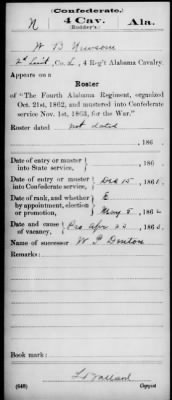 (Confederate.)
N 4 Cav. Ala.
(Roddey's.)
W B Newsom
2d Lieut, Co. L, 4 Reg't Alabama Cavalry.
Appears on a
Roster
of "The Fourth Alabama Regiment, organized
Oct. 21st, 1862, and mustered into Confederate
service Nov. 1st, 1863, for the War."
Roster dated not dated
, 186 .
Date of entry or muster
into State service, , 186 .
Date of entry or muster
into Confederate service, Dec 15, 1861.
Date of rank, and whether
by appointment, election
or promotion, E
May 5, 1862
Date and cause
of vacancy, Pro Apr 23, 1863.
Name of successor W P Denton
Remarks:
Book mark:
(640) Copyist.